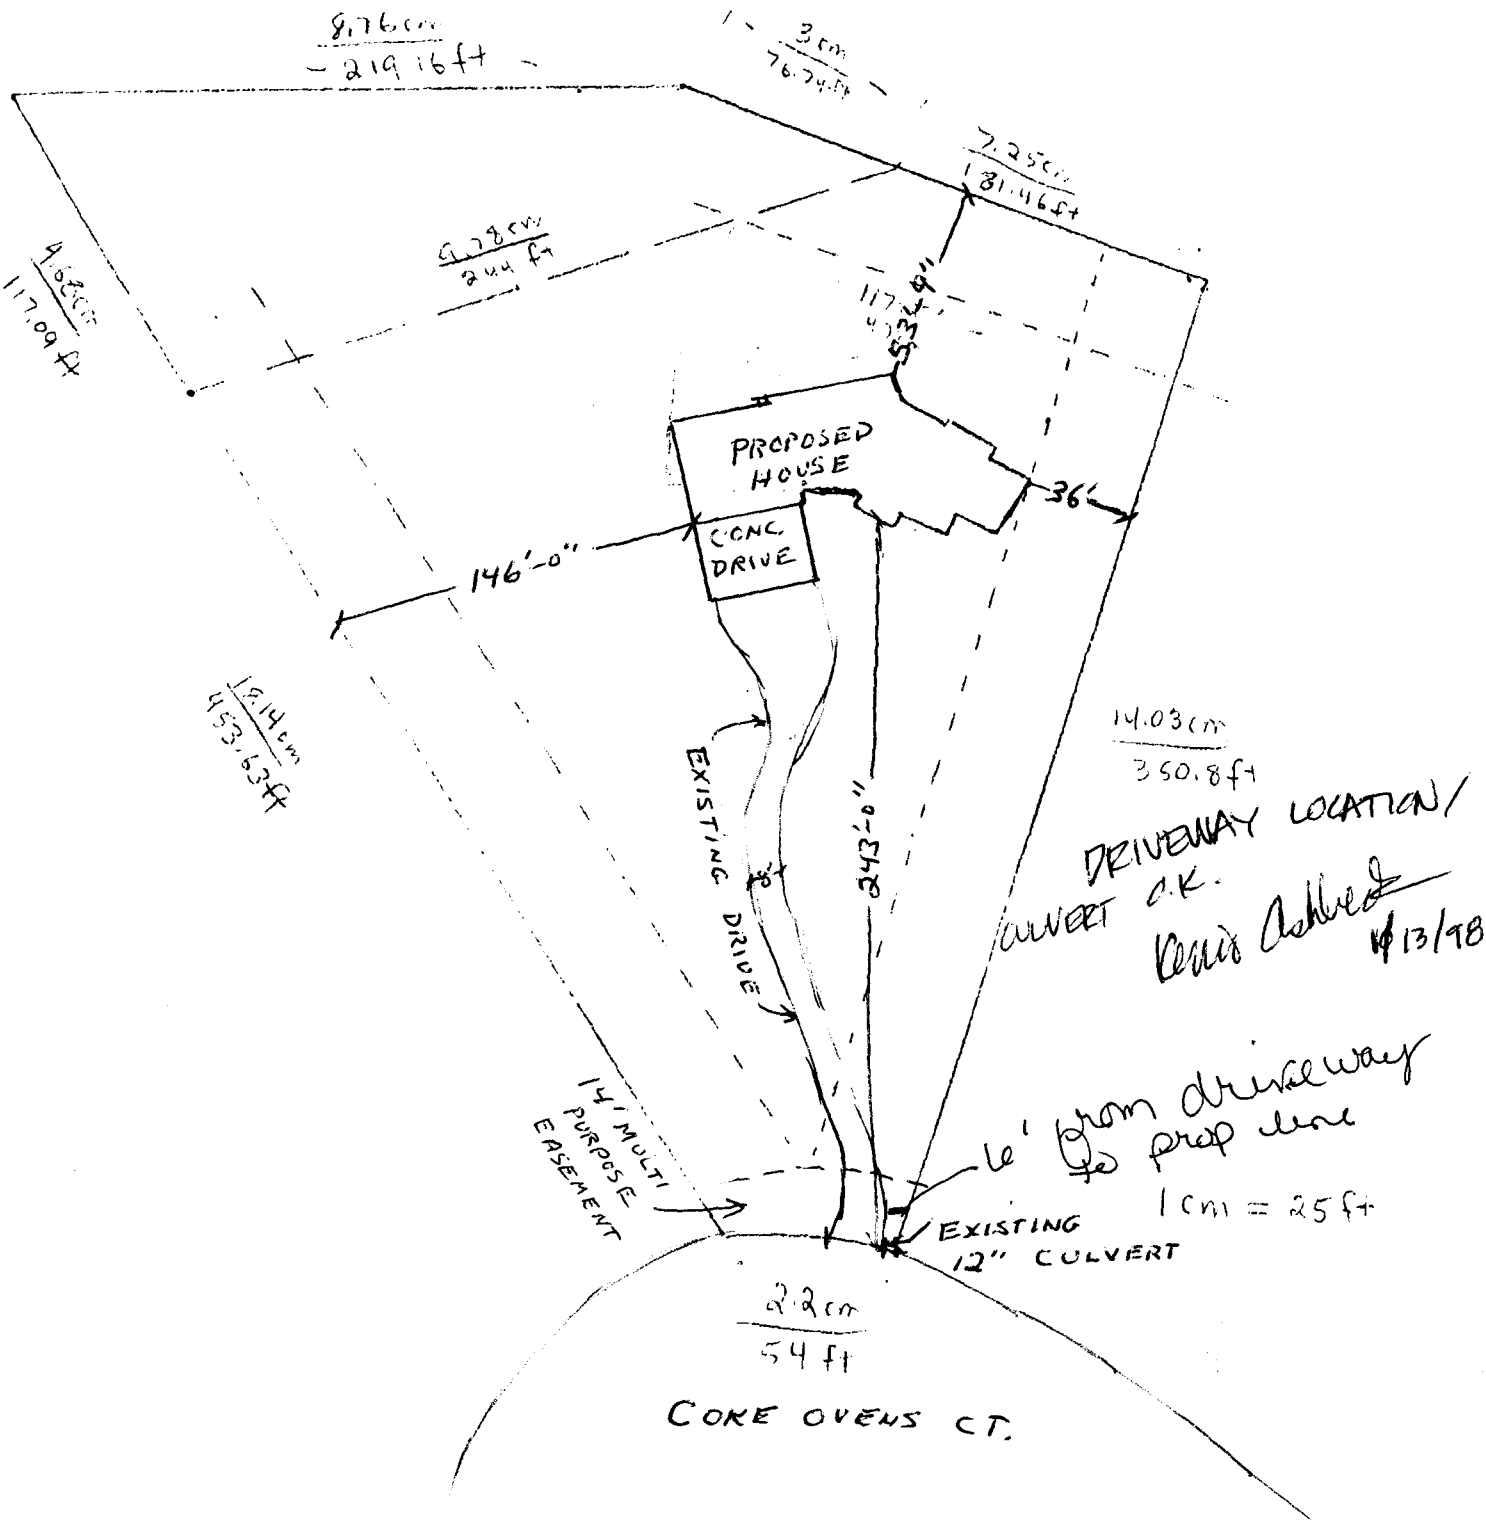 8.76cm
219.16 ft
3 cm
76.74 ft
7.25cm
181.46ft
9.78cm
244 ft
4.68cm
117.09 ft
53'-9"
PROPOSED
HOUSE
36'
CONC.
DRIVE
146'-0"
18.14cm
453.63ft
14.03cm
350.8ft
EXISTING DRIVE
243'-0"
DRIVEWAY LOCATION/
CULVERT O.K.
13/98
14' MULTI
PURPOSE
EASEMENT
from driveway
to prop line
1cm = 25ft
EXISTING
12" CULVERT
2.2cm
54 ft
COKE OVENS CT.